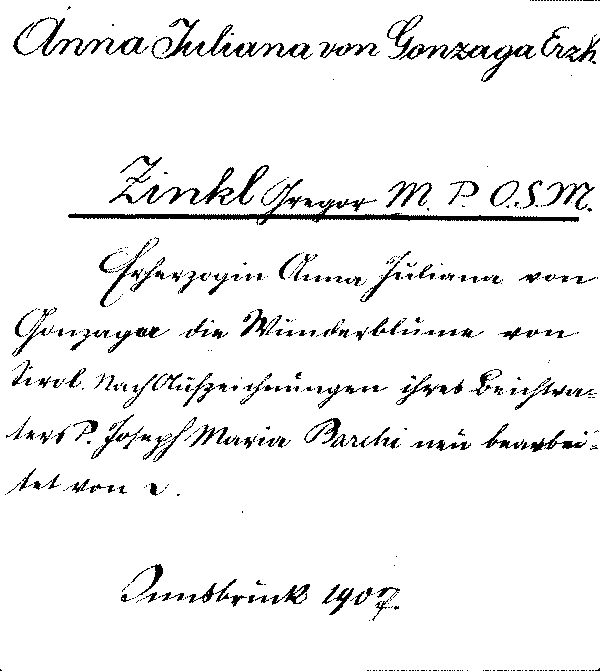 Anna Juliana von Gonzaga Erzh.
Zinkl Gregor M. P. O.S.M.
Erherzogin Anna Juliana von
Gonzaga die Wunderblume von
Tirol. Nach Aufzeichnungen ihres Beichtva-
ters P. Joseph Maria Barchi neu bearbei-
tet von
Innsbruck 1907.